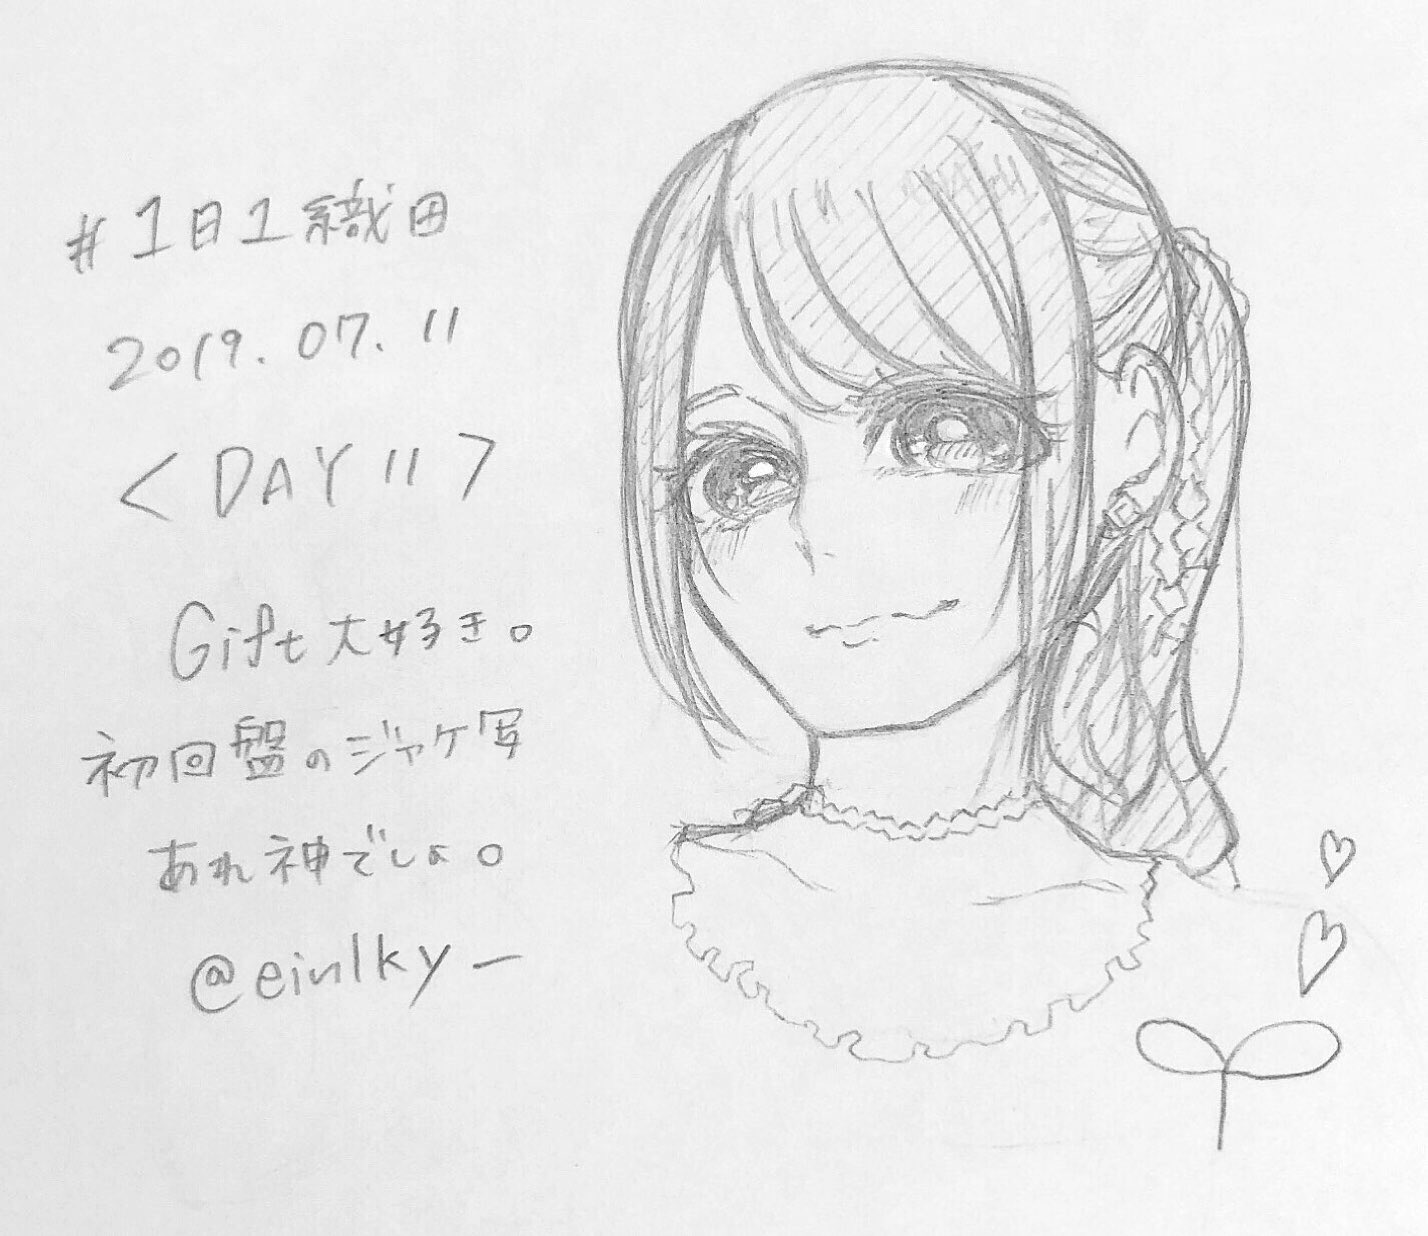 #1日1織田
2019.07.11
<DAY11>
Gift大好き。
初回盤のジャケ写
あれ神でしょ。
@einlky_